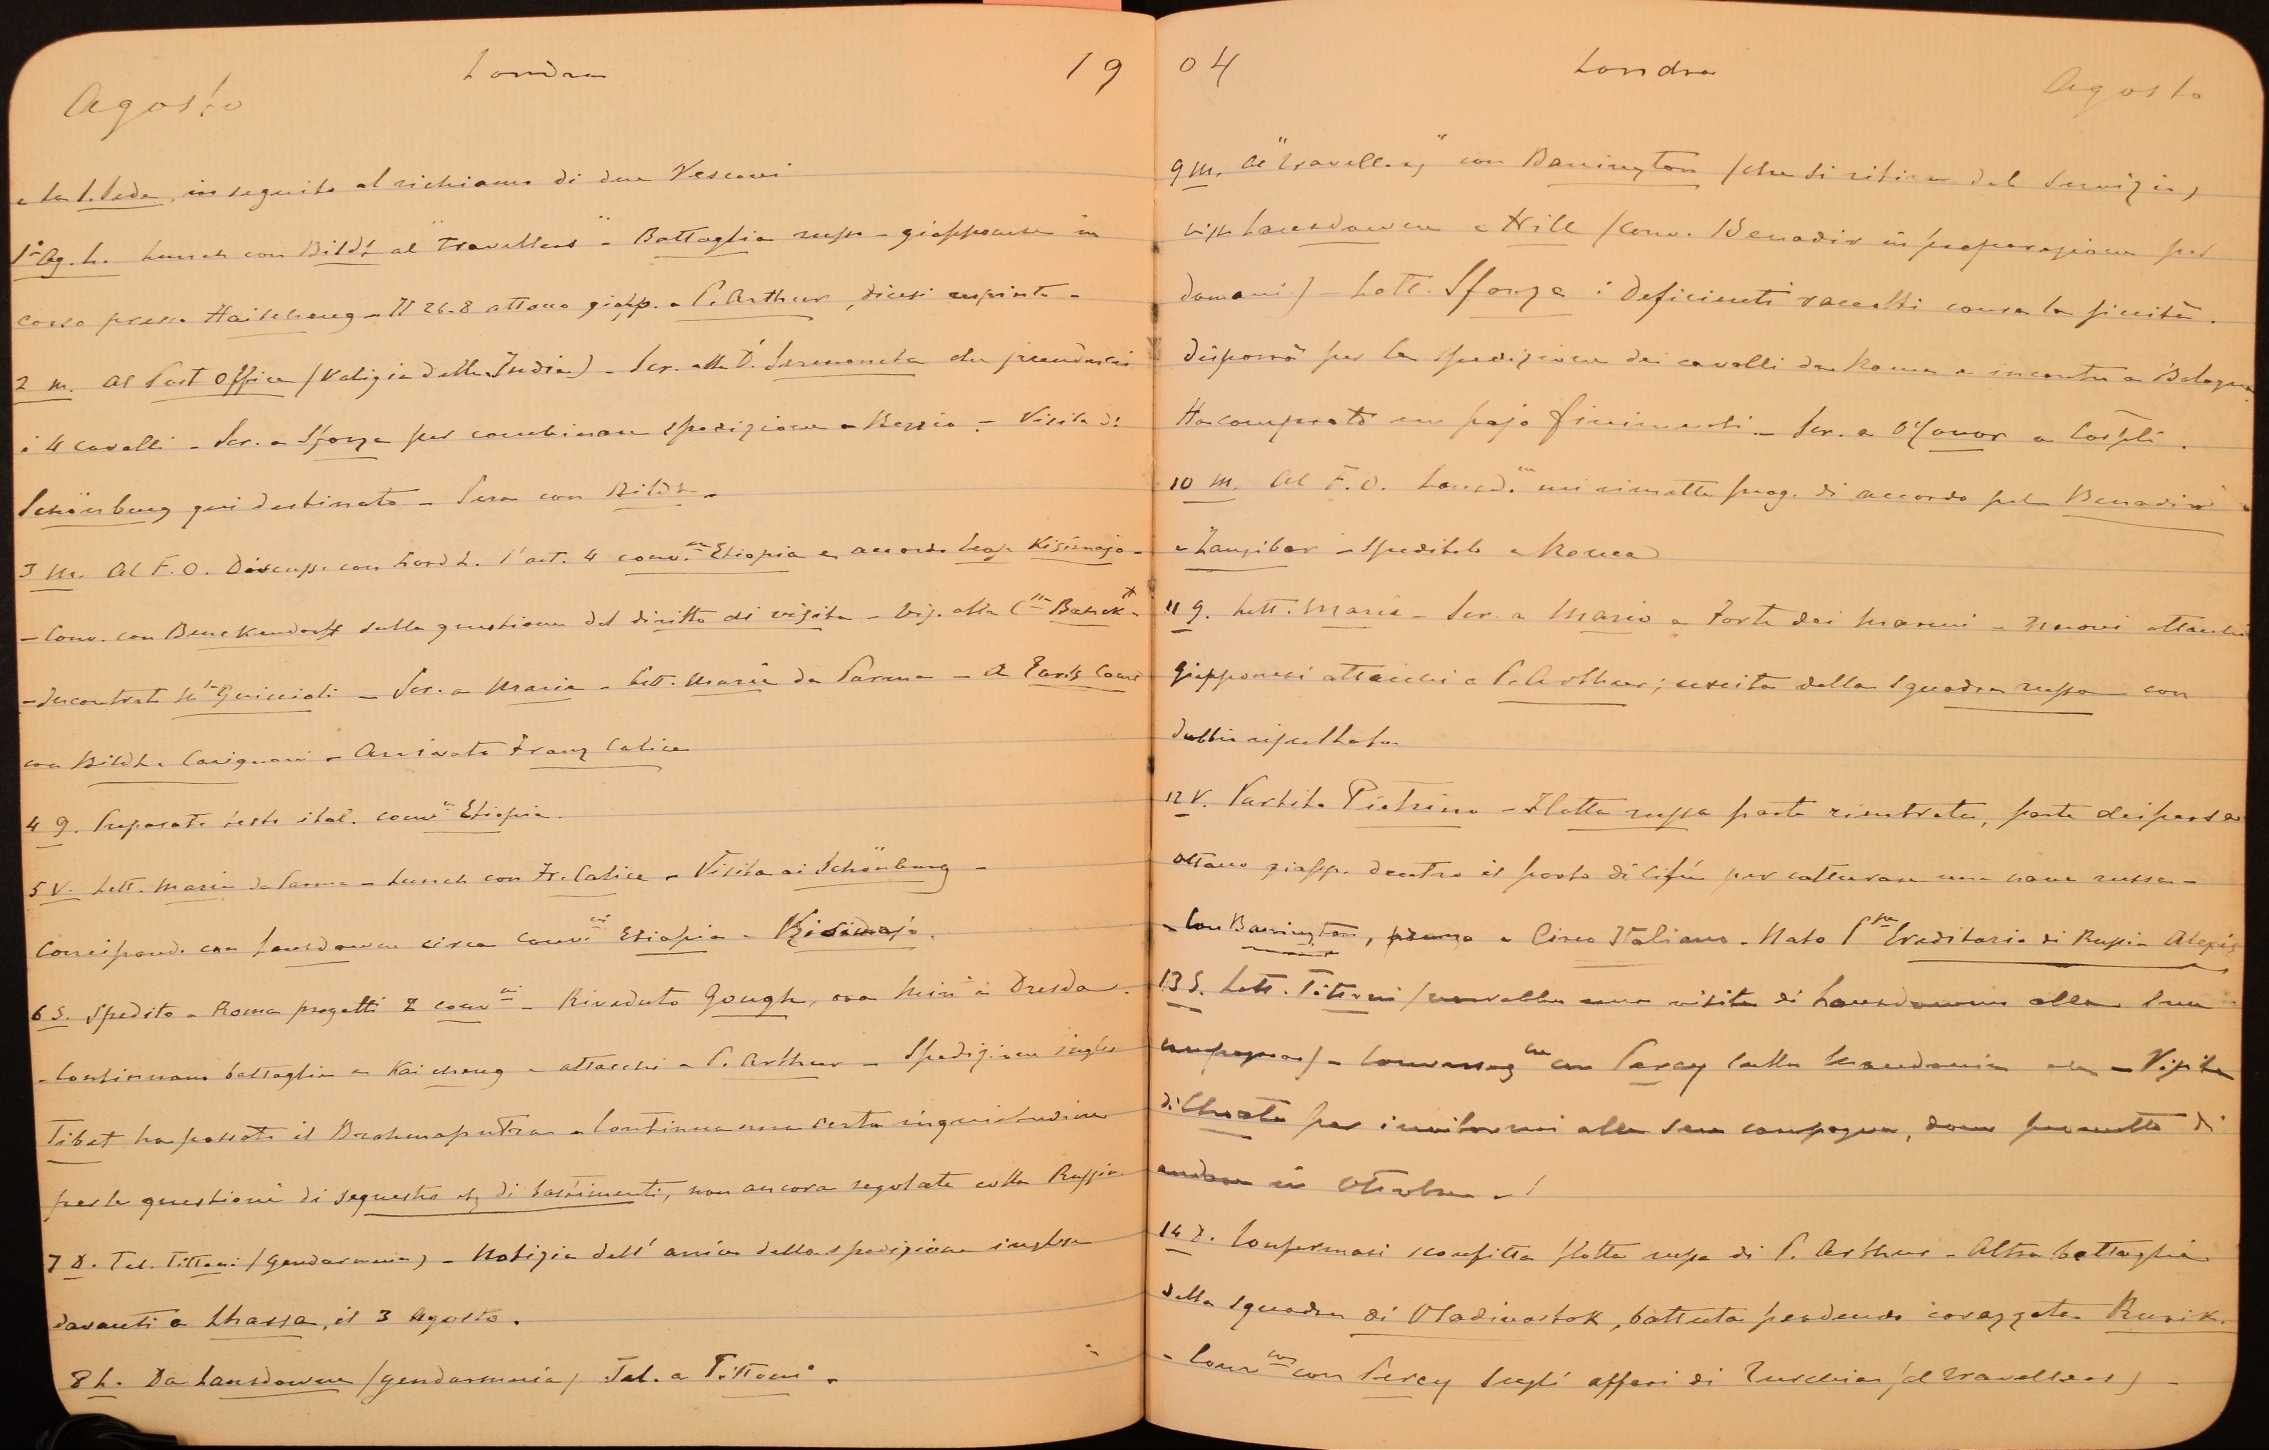 Londra 19
Agosto
e la S. Sede, in seguito al richiamo di due Vescovi
1° Ag. L. Lunch con Bildt al "Travellers" - Battaglia russo-giapponese in
corso presso Haitcheng - Il 26-8 attacco giapp. a P. Arthur, dicesi respinto -
2 M. Al Post Office (Valigia delle Indie) - Scr. alla D. Sermoneta che prenderei
i 4 cavalli - Scr. a Sforza per combinare spedizione a - Visita di
Schönburg qui destinato - Sera con Bildt -
3 M. Al F.O. Discuss. con Lord L. l'art. 4 conv.ne Etiopia e accordo Kisimajo -
- Conv. con Benckendorff sulla questione del diritto di visita - Vis. alla C.ssa
- Incontrat Guiccioli - Scr. a Maria - Lett. Maria da Parma - A Earls Court
con Bildt e Carignani - Arrivato Franz Calice
4 G. Preparato testo ital. conv.ne Etiopia.
5 V. Lett. Maria da Parma - Lunch con Fr. Calice - Visita ai Schönburg -
Corrispond. con Lansdowne circa conv.ne Etiopia - Kisimajo.
6 S. Spedito a Roma progetti 2 conv.ni - Riveduto Gough, ora Min° a Dresda.
- Continuano battaglia a Kaicheng e attacchi a P. Arthur - Spedizione inglese
Tibet ha passato il Brahmaputra - Continua una certa inquietudine
per le questioni di sequestro di bastimenti, non ancora regolate colla Russia
7 D. Tel. Tittoni (gendarmeria) - Notizia dell'arrivo della spedizione inglese
davanti a Lhassa, il 3 Agosto.
8 L. Da Lansdowne (gendarmeria) Tel. a Tittoni -
04 Londra
Agosto
9 M. Al "Travellers" con Barrington (che si ritira dal servizio)
Lansdowne e Hill (conv. Benadir in preparazione per
domani) - Lett. Sforza: Deficienti raccolti causa la siccità.
Disporrà per la spedizione dei cavalli da Roma e incontro a Bologna
Ha comprato un pajo finimenti - Scr. a O'Conor a Cos.pli.
10 M. Al F.O. Lansd.ne mi rimette prog. di accordo pel Benadir
e Zanzibar - Speditolo a Roma
11 G. Lett. Maria - Scr. a Mario a Forte dei Marmi - Nuovi attacchi
giapponesi a P. Arthur; uscita della squadra russa con
dubbio risultato
12 V. Partito Pietrino - Flotta russa parte rientrata, parte dispersa
attacco giapp. dentro il porto di Cifù per catturare una nave russa -
- Con Barrington, pranzo a Circo Italiano - Nato P.pe Ereditario di Russia Alexis
13 S. Lett. Tittoni (vorrebbe una visita di Lansdowne alla sua
campagna) - Conversaz.ne con Percy sulla Macedonia - Visita
di per invitarmi alla sua campagna, dove prometto di
andare in Ottobre - !
14 D. Confermasi sconfitta flotta russa di P. Arthur - Altra battaglia
della squadra di Vladivostok, battuta perdendo corazzata Rurik.
- Conv.ne con Percy sugli affari di Turchia (al Travellers) -